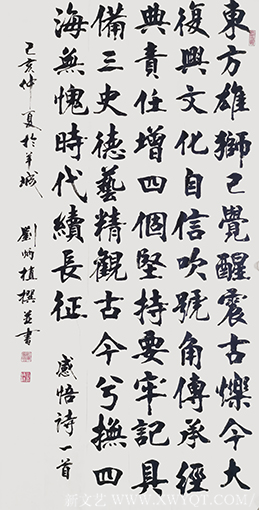 東方雄獅已覺醒震古爍今大
復興文化自信吹號角傳承經
典責任增四個堅持要牢記具
備三史德藝精觀古今兮撫四
海無愧時代續長征
感悟詩一首
己亥仲夏於羊城
劉炳植撰並書
新文艺/WWW.XWYQT.COM/